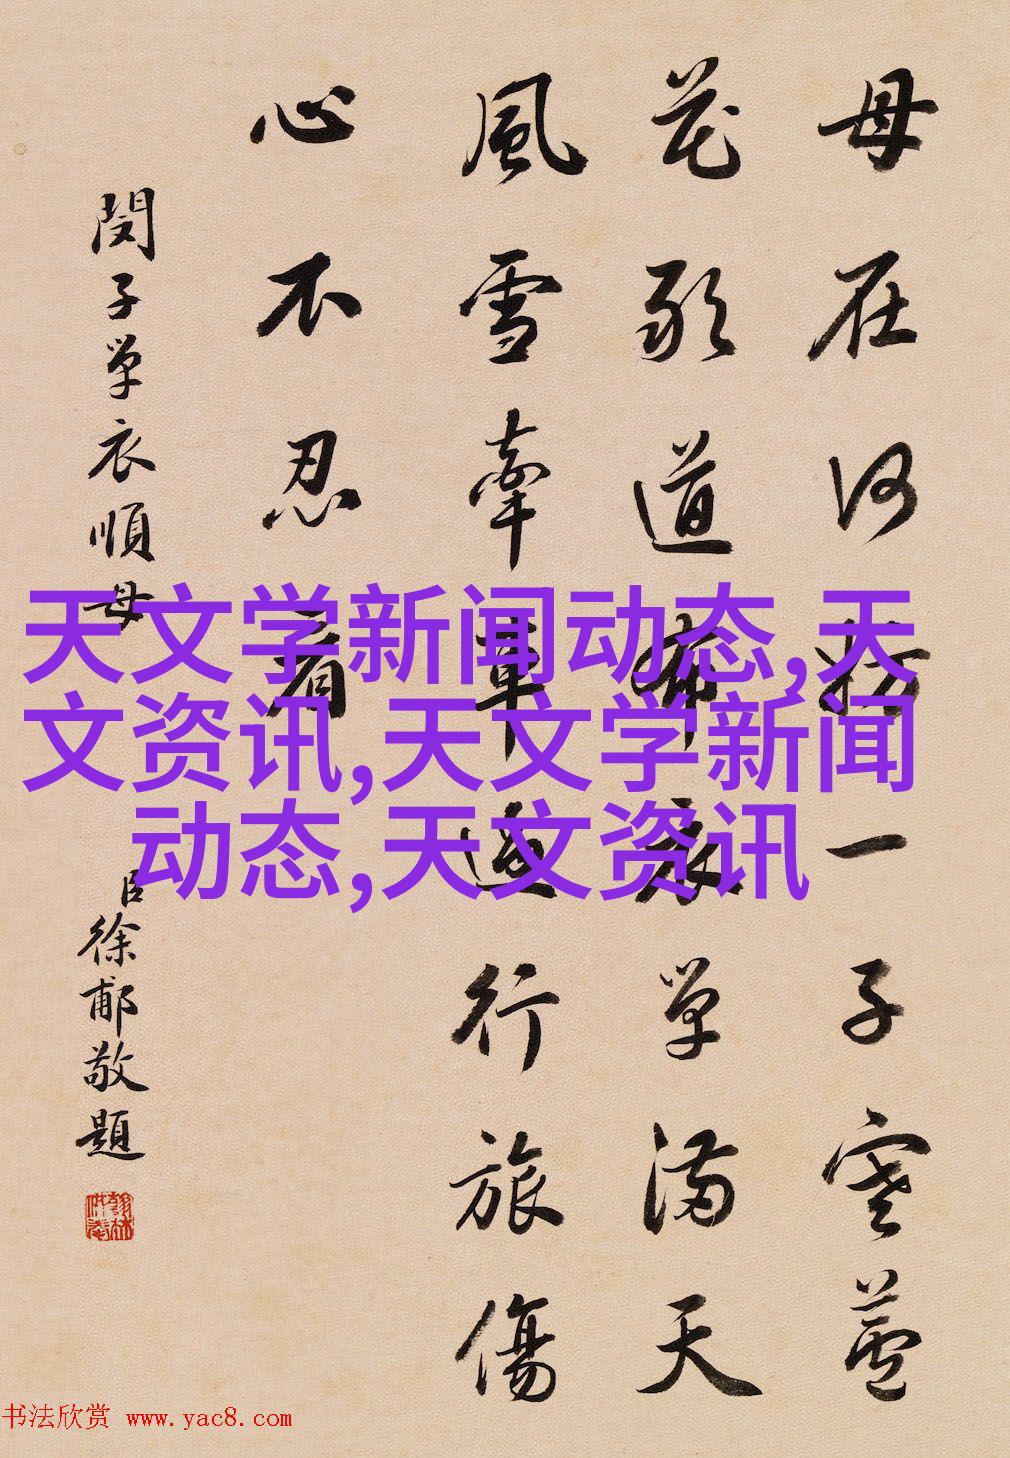 母在何妨一子寒蘆
花道布單滿天
風雪牽車行旅傷
心不忍看
閔子單衣順母
臣徐郙敬題
天文学新闻动态,天
文资讯,天文学新闻
动态,天文资讯
书法欣赏 www.yac8.com